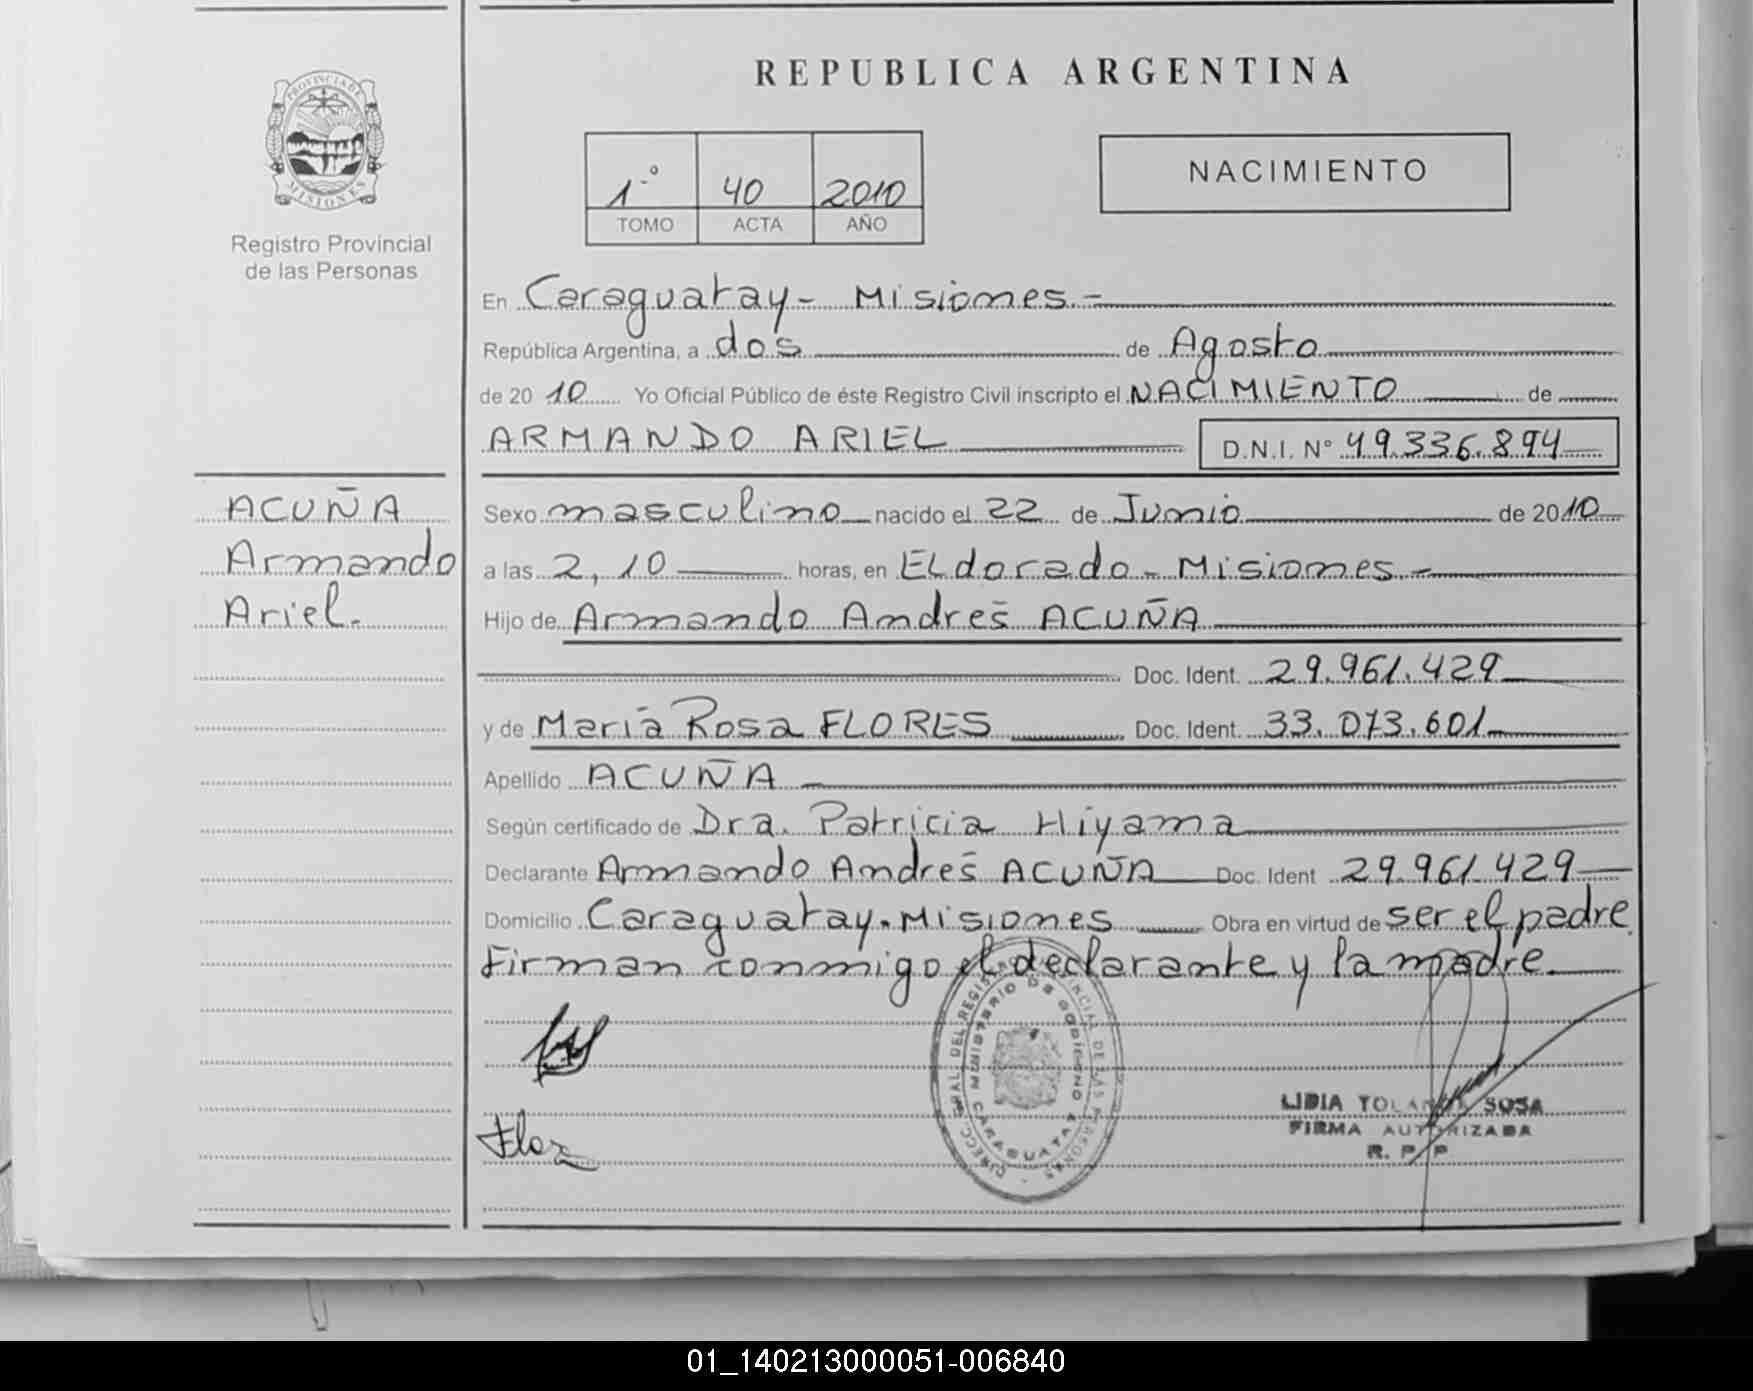 REPUBLICA ARGENTINA
PROVINCIA DE
MISIONES
Registro Provincial
de las Personas
1.º 40 2010
TOMO ACTA AÑO
NACIMIENTO
En Caraguatay - Misiones.-
República Argentina, a dos de Agosto
de 2010 Yo Oficial Público de éste Registro Civil inscripto el NACIMIENTO de
ARMANDO ARIEL D.N.I. Nº 49.336.894
ACUÑA
Armando
Ariel.
Sexo masculino nacido el 22 de Junio de 2010
a las 2,10 horas, en ELdorado - Misiones.-
Hijo de Armando Andrés ACUÑA
Doc. Ident. 29.961.429
y de María Rosa FLORES Doc. Ident. 33.073.601
Apellido ACUÑA
Según certificado de Dra. Patricia Hiyama
Declarante Armando Andrés ACUÑA Doc. Ident 29.961.429
Domicilio Caraguatay. Misiones Obra en virtud de ser el padre.
Firman conmigo el declarante y la madre.
MINISTERIO DE GOBIERNO
CARAGUATAY
LIDIA YOLANDA SOSA
FIRMA AUTORIZADA
R. P. P
01_140213000051-006840